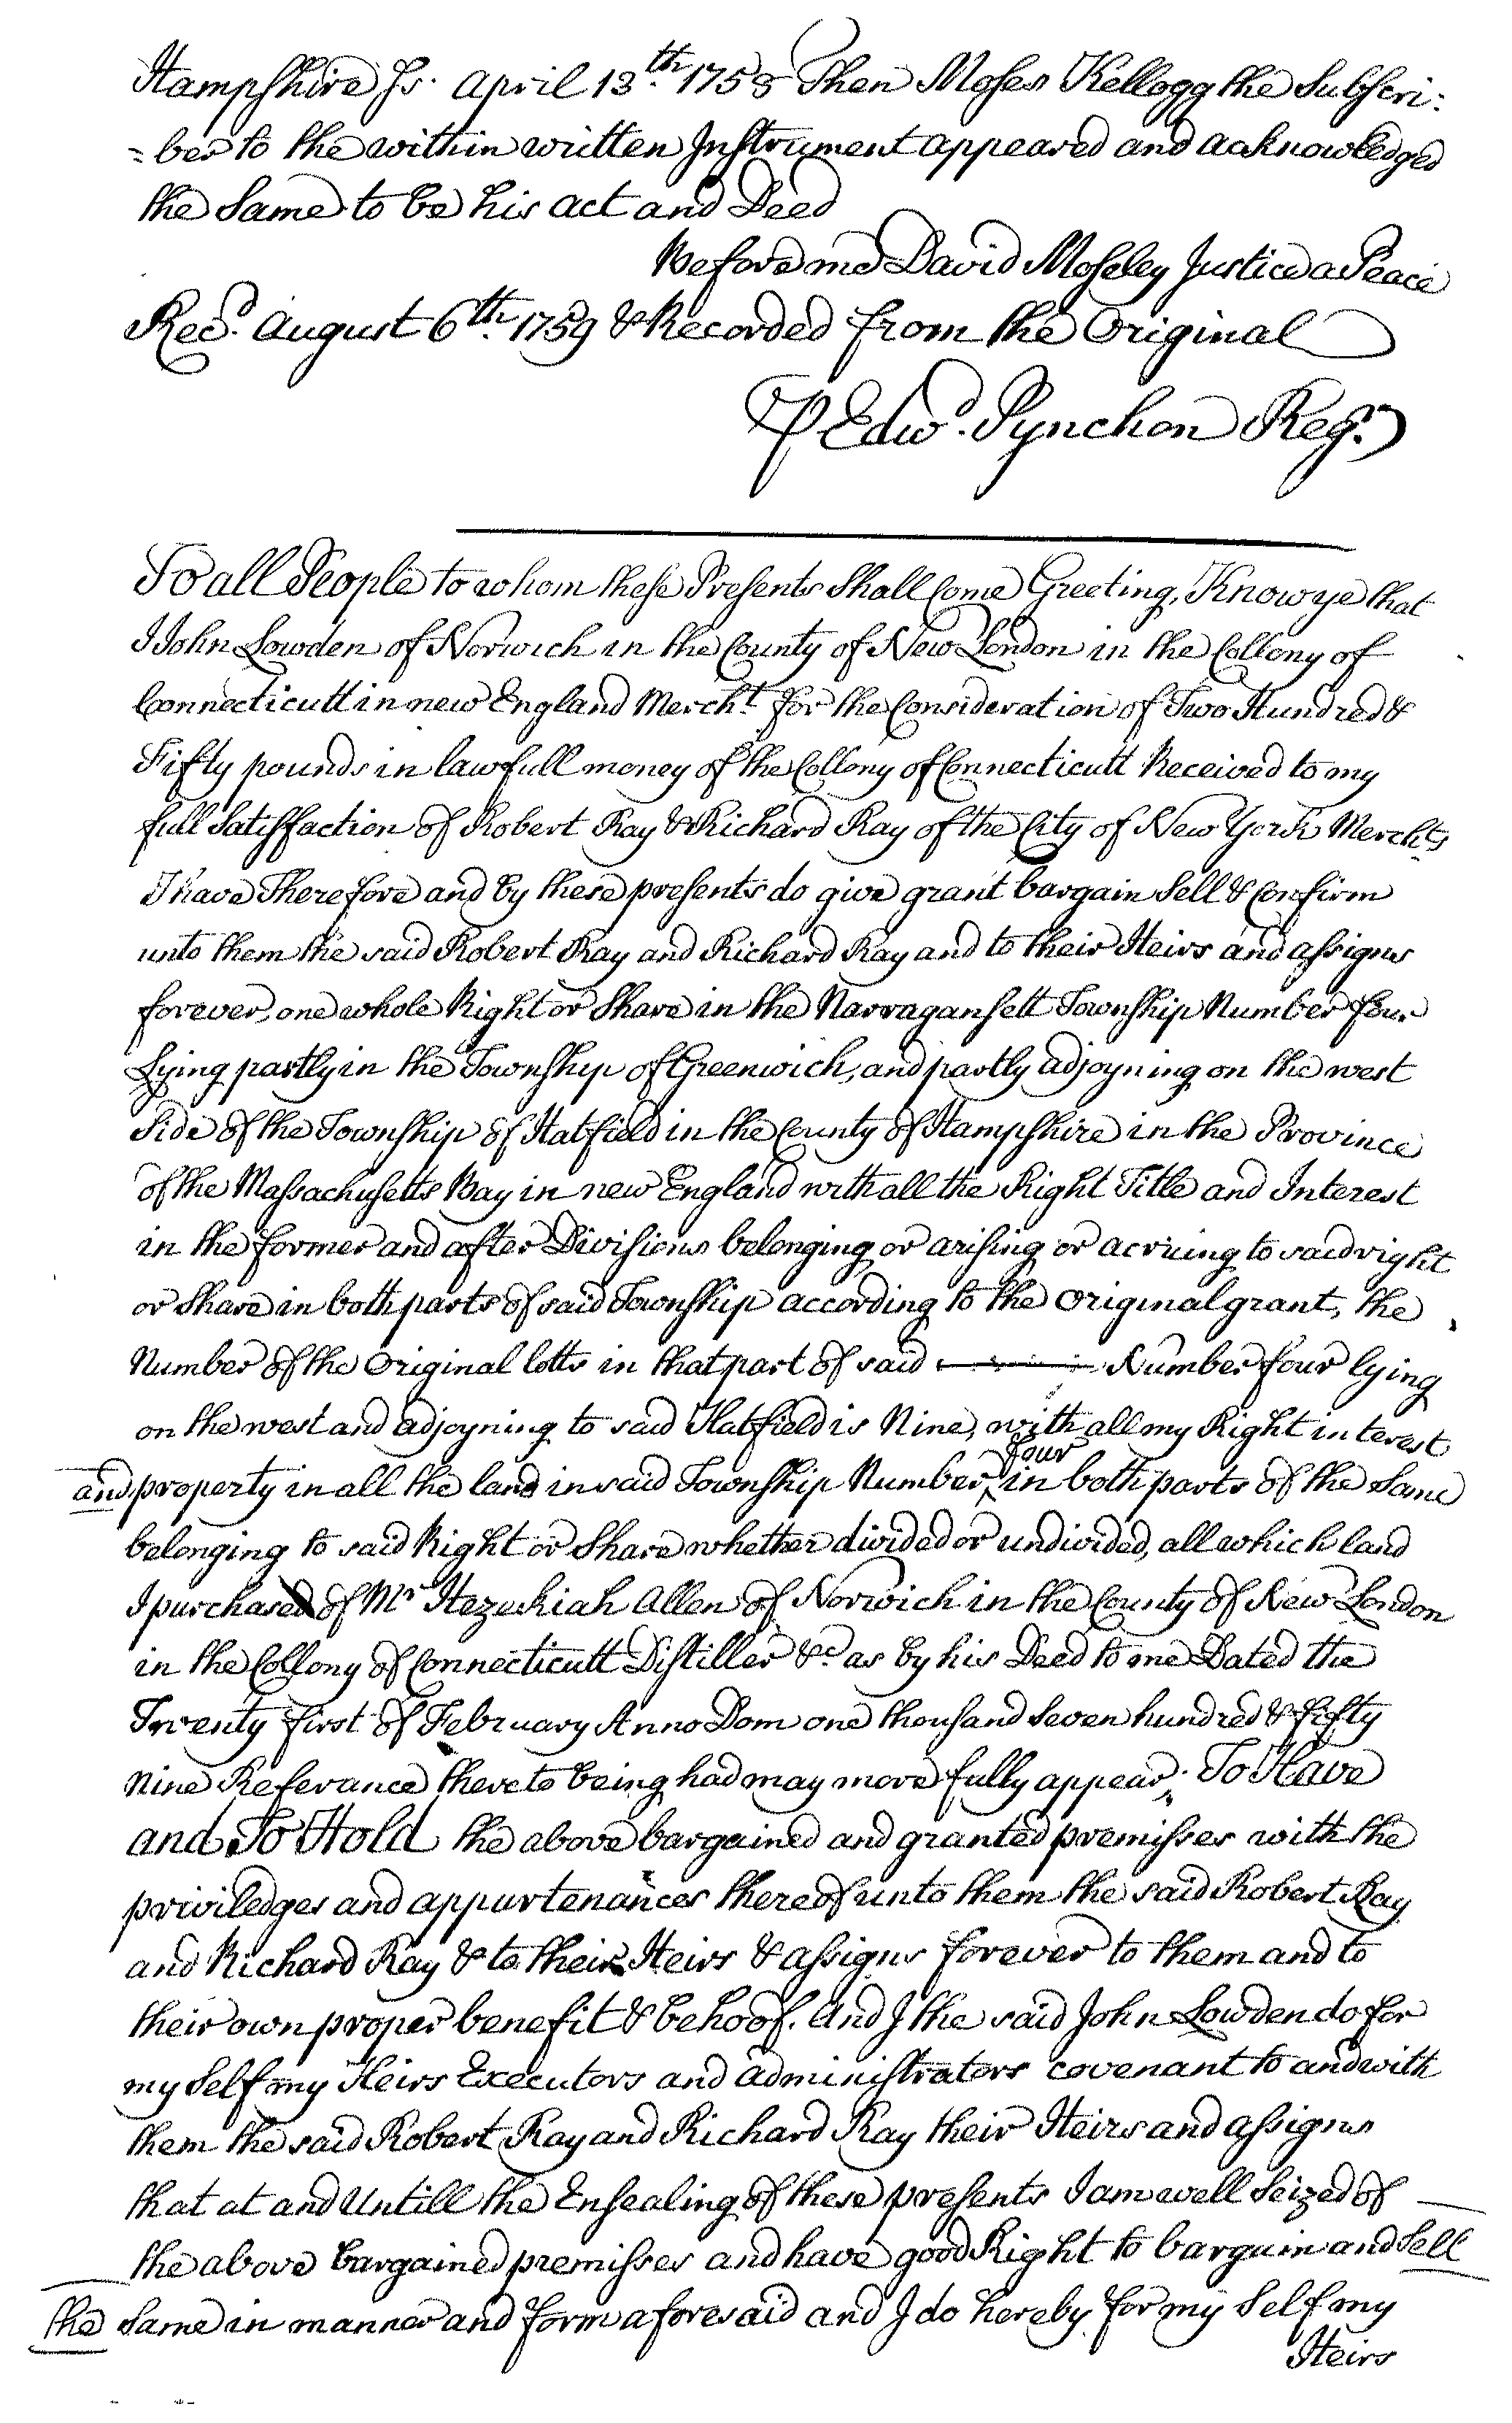 Hampshire Ss. April 13th. 1758 Then Moses Kellogg the Subscri:
=ber to the within written Instrument appeared and acknowledged
the Same to be his act and Deed
Before me David Moseley Justice a Peace
Recd. August 6th. 1759 & Recorded from the Original
P Edwd. Pynchon Regr.
To all People to whom these Presents Shall Come Greeting, Know ye that
I John Lowden of Norwich in the County of New London in the Collony of
Connecticutt in new England Mercht. for the Consideration of Two Hundred &
Fifty pounds in lawfull money of the Collony of Connecticutt Received to my
full Satisffaction of Robert Ray & Richard Ray of the City of New York Merchts
I have Therefore and by these presents do give grant bargain Sell & Confirm
unto them the said Robert Ray and Richard Ray and to their Heirs and assigns
forever, one whole Right or Share in the Narragansett Township Number four
Lying partly in the Township of Greenwich, and partly adjoyning on the west
Side of the Township of Hatfield in the County of Hampshire in the Province
of the Massachusetts Bay in new England with all the Right Title and Interest
in the former and after Divisions belonging or arising or acruing to said right
or Share in both parts of said Township according to the Original grant, the
Number of the Original lotts in that part of said Number four lying
on the west and adjoyning to said Hatfield is Nine, with all my Right interest
and property in all the land in said Township Number four in both parts of the Same
belonging to said Right or Share whether divided or undivided, all which land
I purchased of Mr Hezeckiah Allen of Norwich in the County of New London
in the Collony of Connecticutt Distiller &c as by his Deed to me Dated the
Twenty first of February Anno Dom one thousand Seven hundred & fifty
nine Referance thereto being had may more fully appear. To Have
and To Hold the above bargained and granted premisses with the
priviledges and appurtenances thereof unto them the said Robert Ray
and Richard Ray & to their Heirs & assigns forever to them and to
their own proper benefit & behoof. And I the said John Lowden do for
my Self my Heirs Executors and administrators covenant to and with
them the said Robert Ray and Richard Ray their Heirs and assigns
that at and Untill the Ensealing of these presents I am well Seized of
the above bargained premisses and have good Right to bargain and Sell
the Same in manner and form aforesaid and I do hereby for my Self my
Heirs